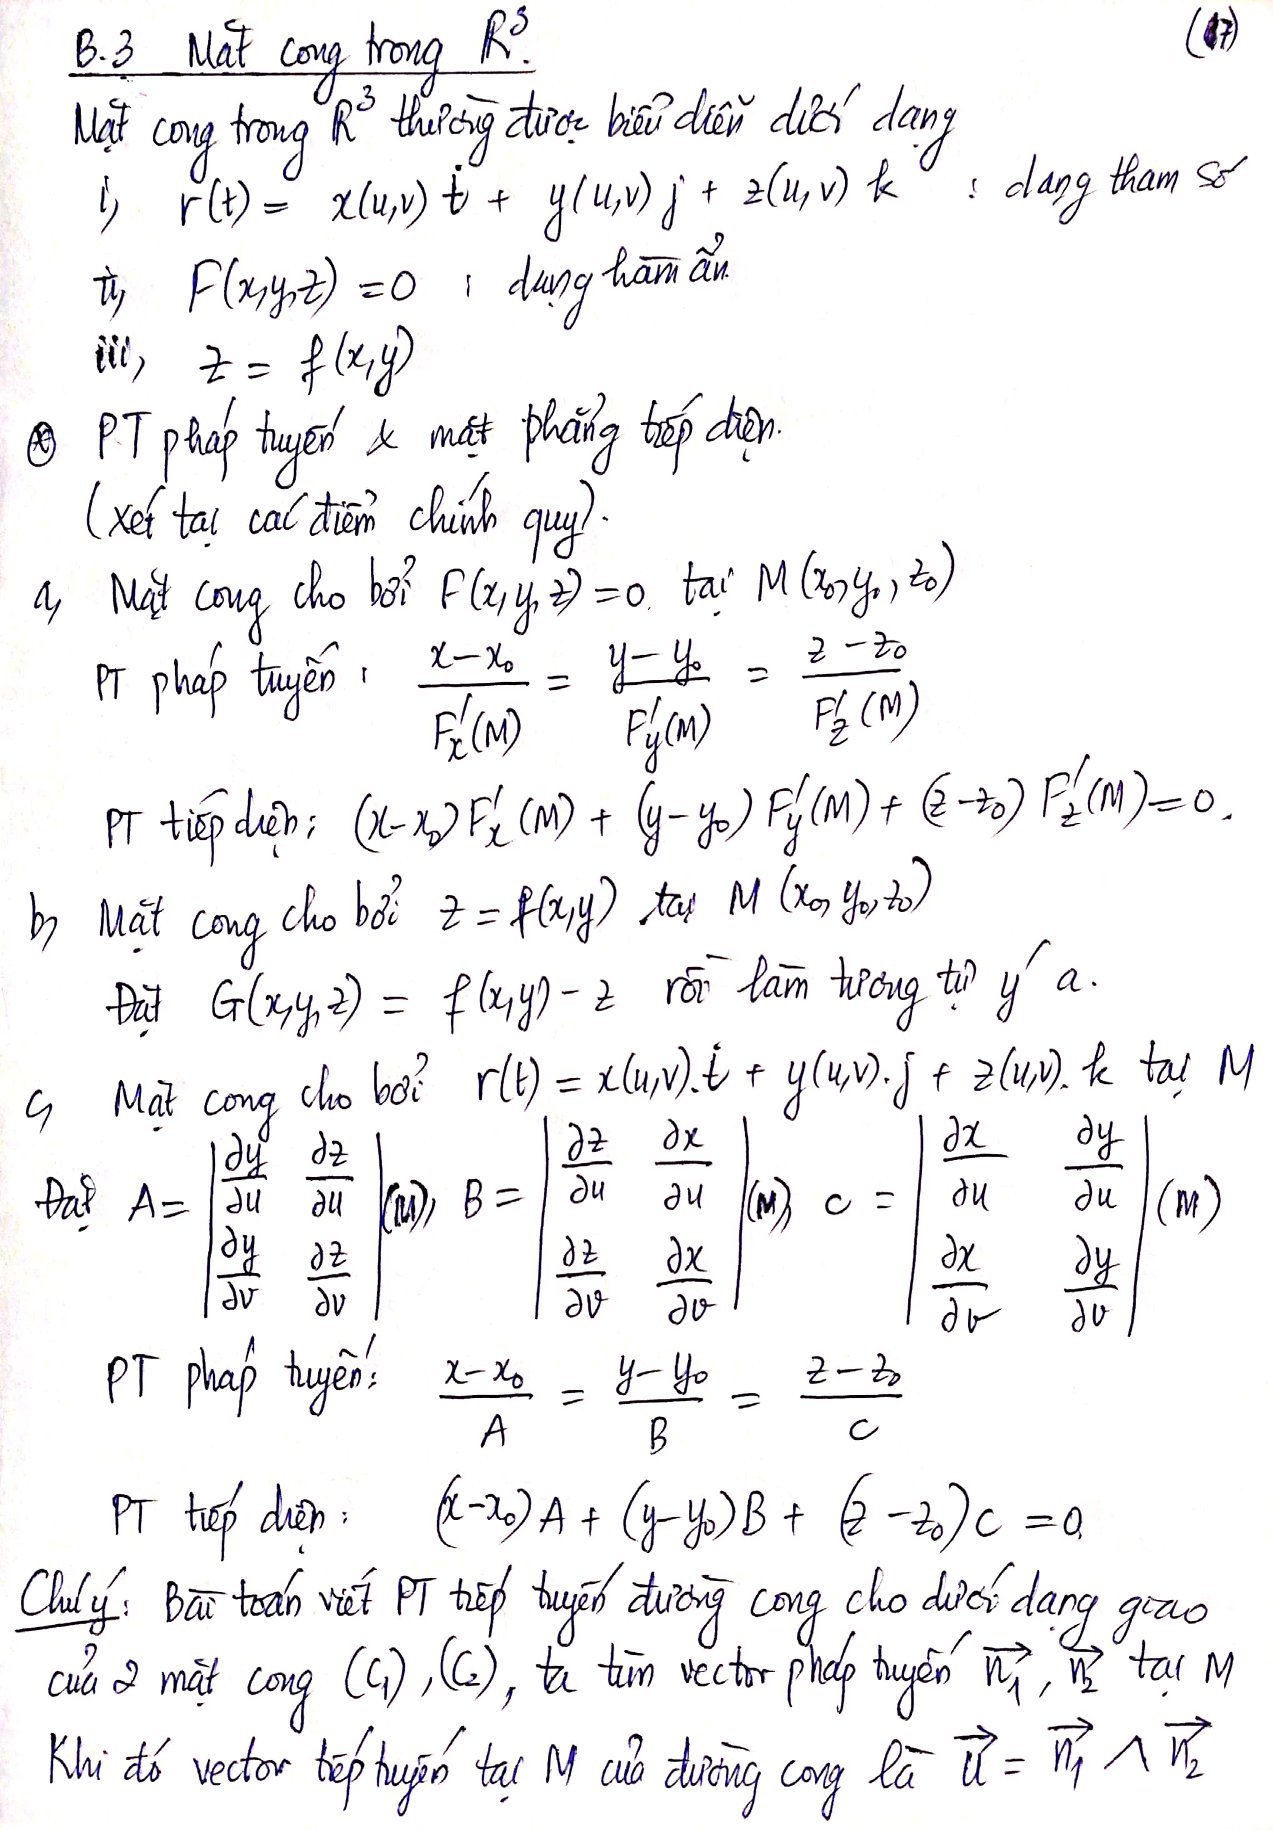 B.3 Mặt cong trong R³. (17)
Mặt cong trong R³ thường được biểu diễn dưới dạng
i, r(t) = x(u,v) i + y(u,v) j + z(u,v) k : dạng tham số
ii, F(x,y,z) = 0 : dạng hàm ẩn
iii, z = f(x,y)
⊛ PT pháp tuyến & mặt phẳng tiếp diện.
(xét tại các điểm chính quy).
a, Mặt cong cho bởi F(x,y,z) = 0. tại M(x₀,y₀,z₀)
PT pháp tuyến : (x-x₀)/F'ₓ(M) = (y-y₀)/F'y(M) = (z-z₀)/F'z(M)
PT tiếp diện: (x-x₀)F'ₓ(M) + (y-y₀)F'y(M) + (z-z₀)F'z(M) = 0.
b, Mặt cong cho bởi z = f(x,y) tại M(x₀,y₀,z₀)
Đặt G(x,y,z) = f(x,y) - z rồi làm tương tự ý a.
c, Mặt cong cho bởi r(t) = x(u,v).i + y(u,v).j + z(u,v).k tại M
Đặt A = |∂y/∂u ∂z/∂u; ∂y/∂v ∂z/∂v|(M), B = |∂z/∂u ∂x/∂u; ∂z/∂v ∂x/∂v|(M), C = |∂x/∂u ∂y/∂u; ∂x/∂v ∂y/∂v|(M)
PT pháp tuyến: (x-x₀)/A = (y-y₀)/B = (z-z₀)/C
PT tiếp diện: (x-x₀)A + (y-y₀)B + (z-z₀)C = 0.
Chú ý: Bài toán viết PT tiếp tuyến đường cong cho dưới dạng giao
của 2 mặt cong (C₁), (C₂), ta tìm vector pháp tuyến n₁→, n₂→ tại M
Khi đó vector tiếp tuyến tại M của đường cong là u→ = n₁→ ∧ n₂→